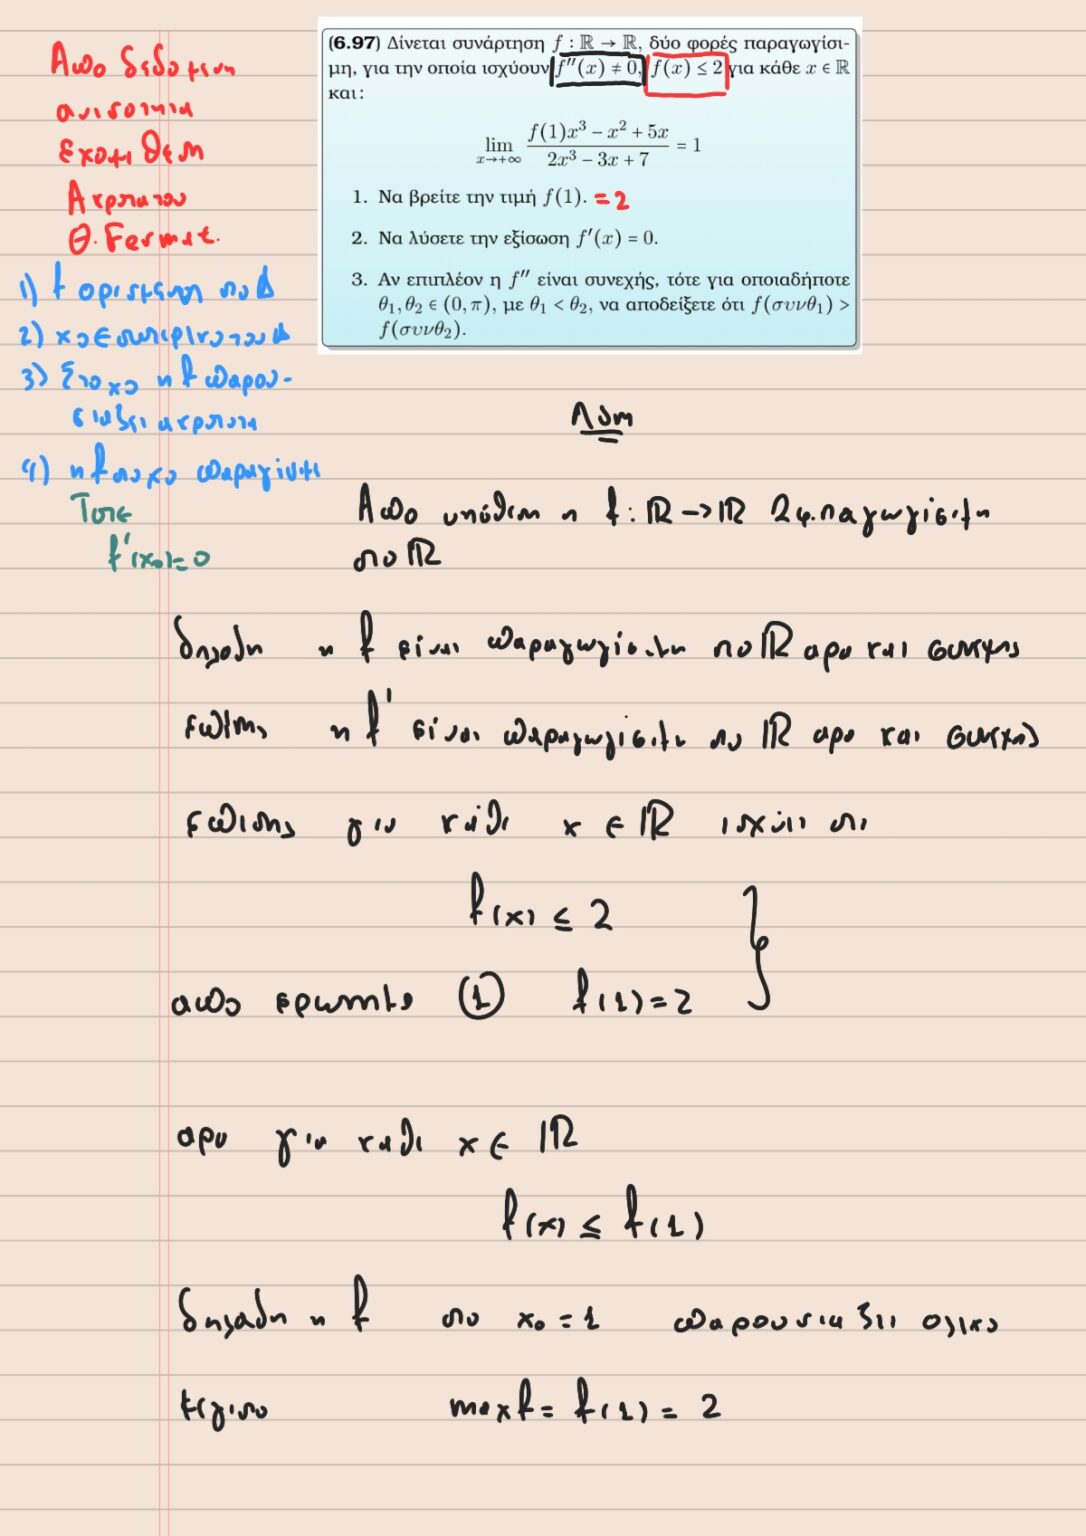 Απο δεδομενη
ανισοτητα
εχουμε θεμα
Ακροτατου
Θ. Fermat.
1) f ορισμενη στο Δ
2) xο ∈ εσωτερικο του Δ
3) Στο xο η f παρου-
σιαζει ακροτατο
4) η f στο xο παραγ/μη
Τοτε
f'(xο)=0
(6.97) Δίνεται συνάρτηση f : ℝ → ℝ, δύο φορές παραγωγίσι-
μη, για την οποία ισχύουν f''(x) ≠ 0, f(x) ≤ 2 για κάθε x ∈ ℝ
και:
lim x→+∞ (f(1)x³ − x² + 5x)/(2x³ − 3x + 7) = 1
1. Να βρείτε την τιμή f(1). = 2
2. Να λύσετε την εξίσωση f'(x) = 0.
3. Αν επιπλέον η f'' είναι συνεχής, τότε για οποιαδήποτε
θ₁, θ₂ ∈ (0, π), με θ₁ < θ₂, να αποδείξετε ότι f(συνθ₁) >
f(συνθ₂).
Λυση
Απο υπόθεση η f: ℝ → ℝ 2φ. παραγωγίσιμη
στο ℝ
δηλαδη η f είναι παραγωγίσιμη στο ℝ αρα και συνεχης
επίσης η f' είναι παραγωγίσιμη στο ℝ αρα και συνεχης
επισης για κάθε x ∈ ℝ ισχύει οτι
f(x) ≤ 2
απο ερωτημα ① f(1) = 2
αρα για καθε x ∈ ℝ
f(x) ≤ f(1)
δηλαδη η f στο xο = 1 παρουσιαζει ολικο
μεγιστο max f = f(1) = 2